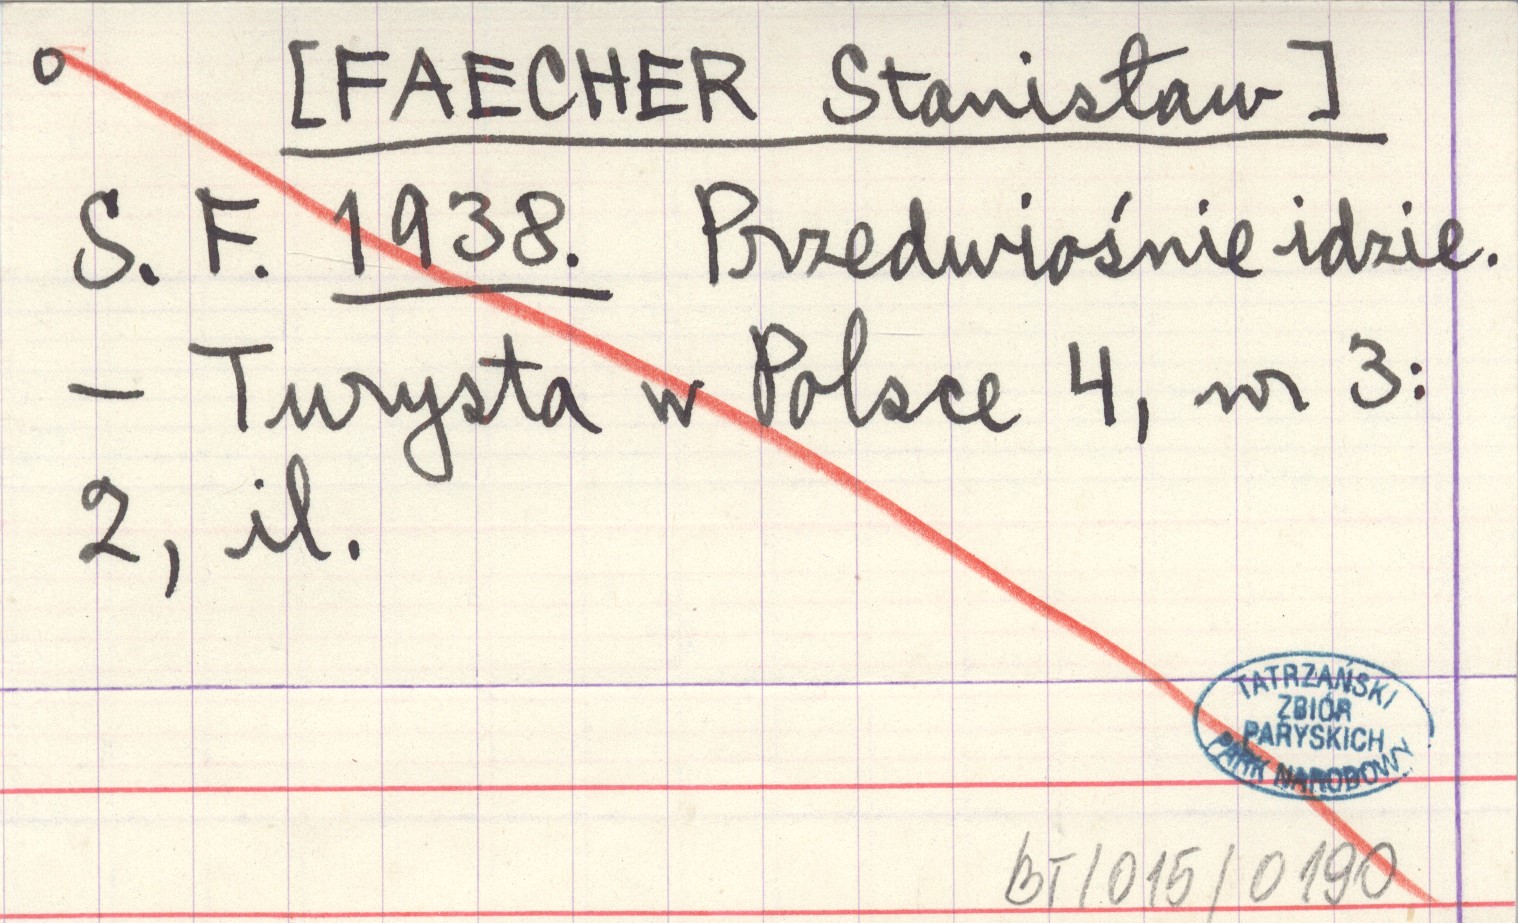 o [FAECHER Stanisław]
S. F. 1938. Przedwiośnie idzie.
– Turysta w Polsce 4, nr 3:
2, il.
TATRZAŃSKI
ZBIÓR
PARYSKICH
PARK NARODOWY
BT/015/0190